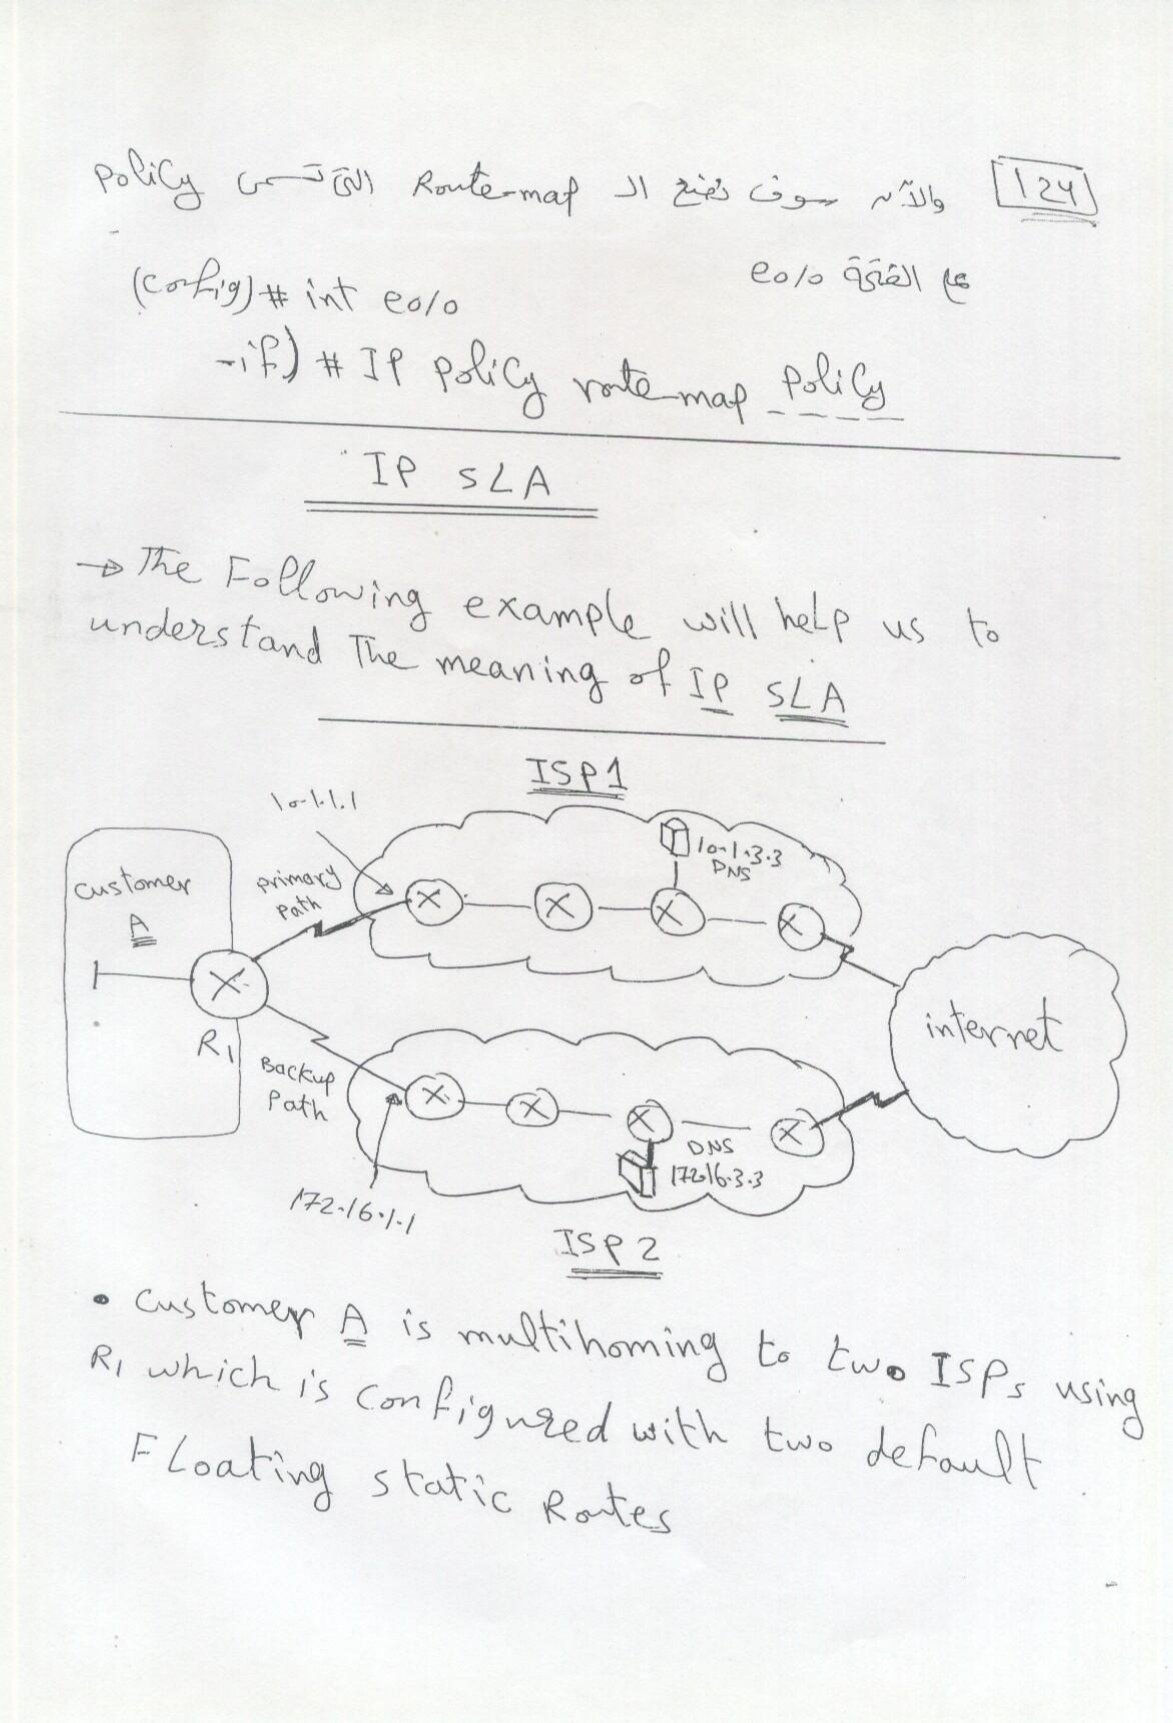 124
والآن سوف نضع الـ Route-map التى تسمى policy
على الفتحة e0/0
(config)# int e0/0
-if) # IP policy route-map policy
IP SLA
→ The Following example will help us to
understand The meaning of IP SLA
ISP1
10.1.1.1
10.1.3.3
DNS
customer
A
primary
path
internet
R1
Backup
Path
DNS
172.16.3.3
172.16.1.1
ISP2
• customer A is multihoming to two ISPs using
R1 which is configured with two default
Floating static Routes